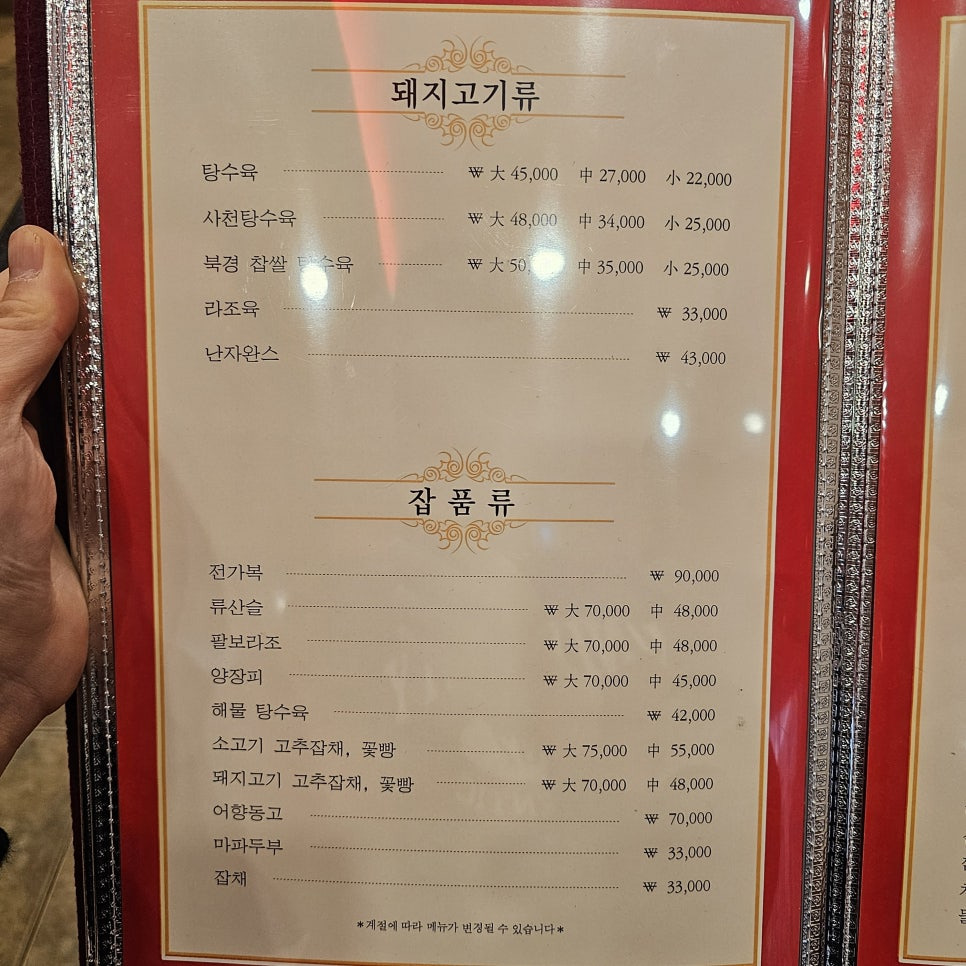 돼지고기류
탕수육 ₩ 大 45,000 中 27,000 小 22,000
사천탕수육 ₩ 大 48,000 中 34,000 小 25,000
북경 찹쌀 탕수육 ₩ 大 中 35,000 小 25,000
라조육 ₩ 33,000
난자완스 ₩ 43,000
잡품류
전가복 ₩ 90,000
류산슬 ₩ 大 70,000 中 48,000
팔보라조 ₩ 大 70,000 中 48,000
양장피 ₩ 大 70,000 中 45,000
해물 탕수육 ₩ 42,000
소고기 고추잡채, 꽃빵 ₩ 大 75,000 中 55,000
돼지고기 고추잡채, 꽃빵 ₩ 大 70,000 中 48,000
어향동고 ₩ 70,000
마파두부 ₩ 33,000
잡채 ₩ 33,000
*계절에 따라 메뉴가 변경될 수 있습니다*